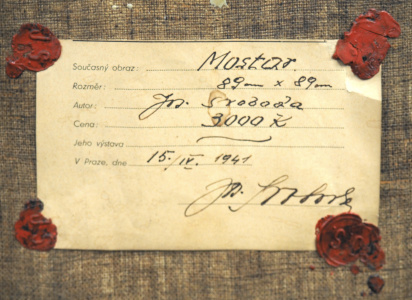 Současný obraz: Mostar
Rozměr: 89cm x 89cm
Autor: Jos. Svoboda
Cena: 3000 K
Jeho výstava
V Praze, dne 15./IV. 1941
Svoboda